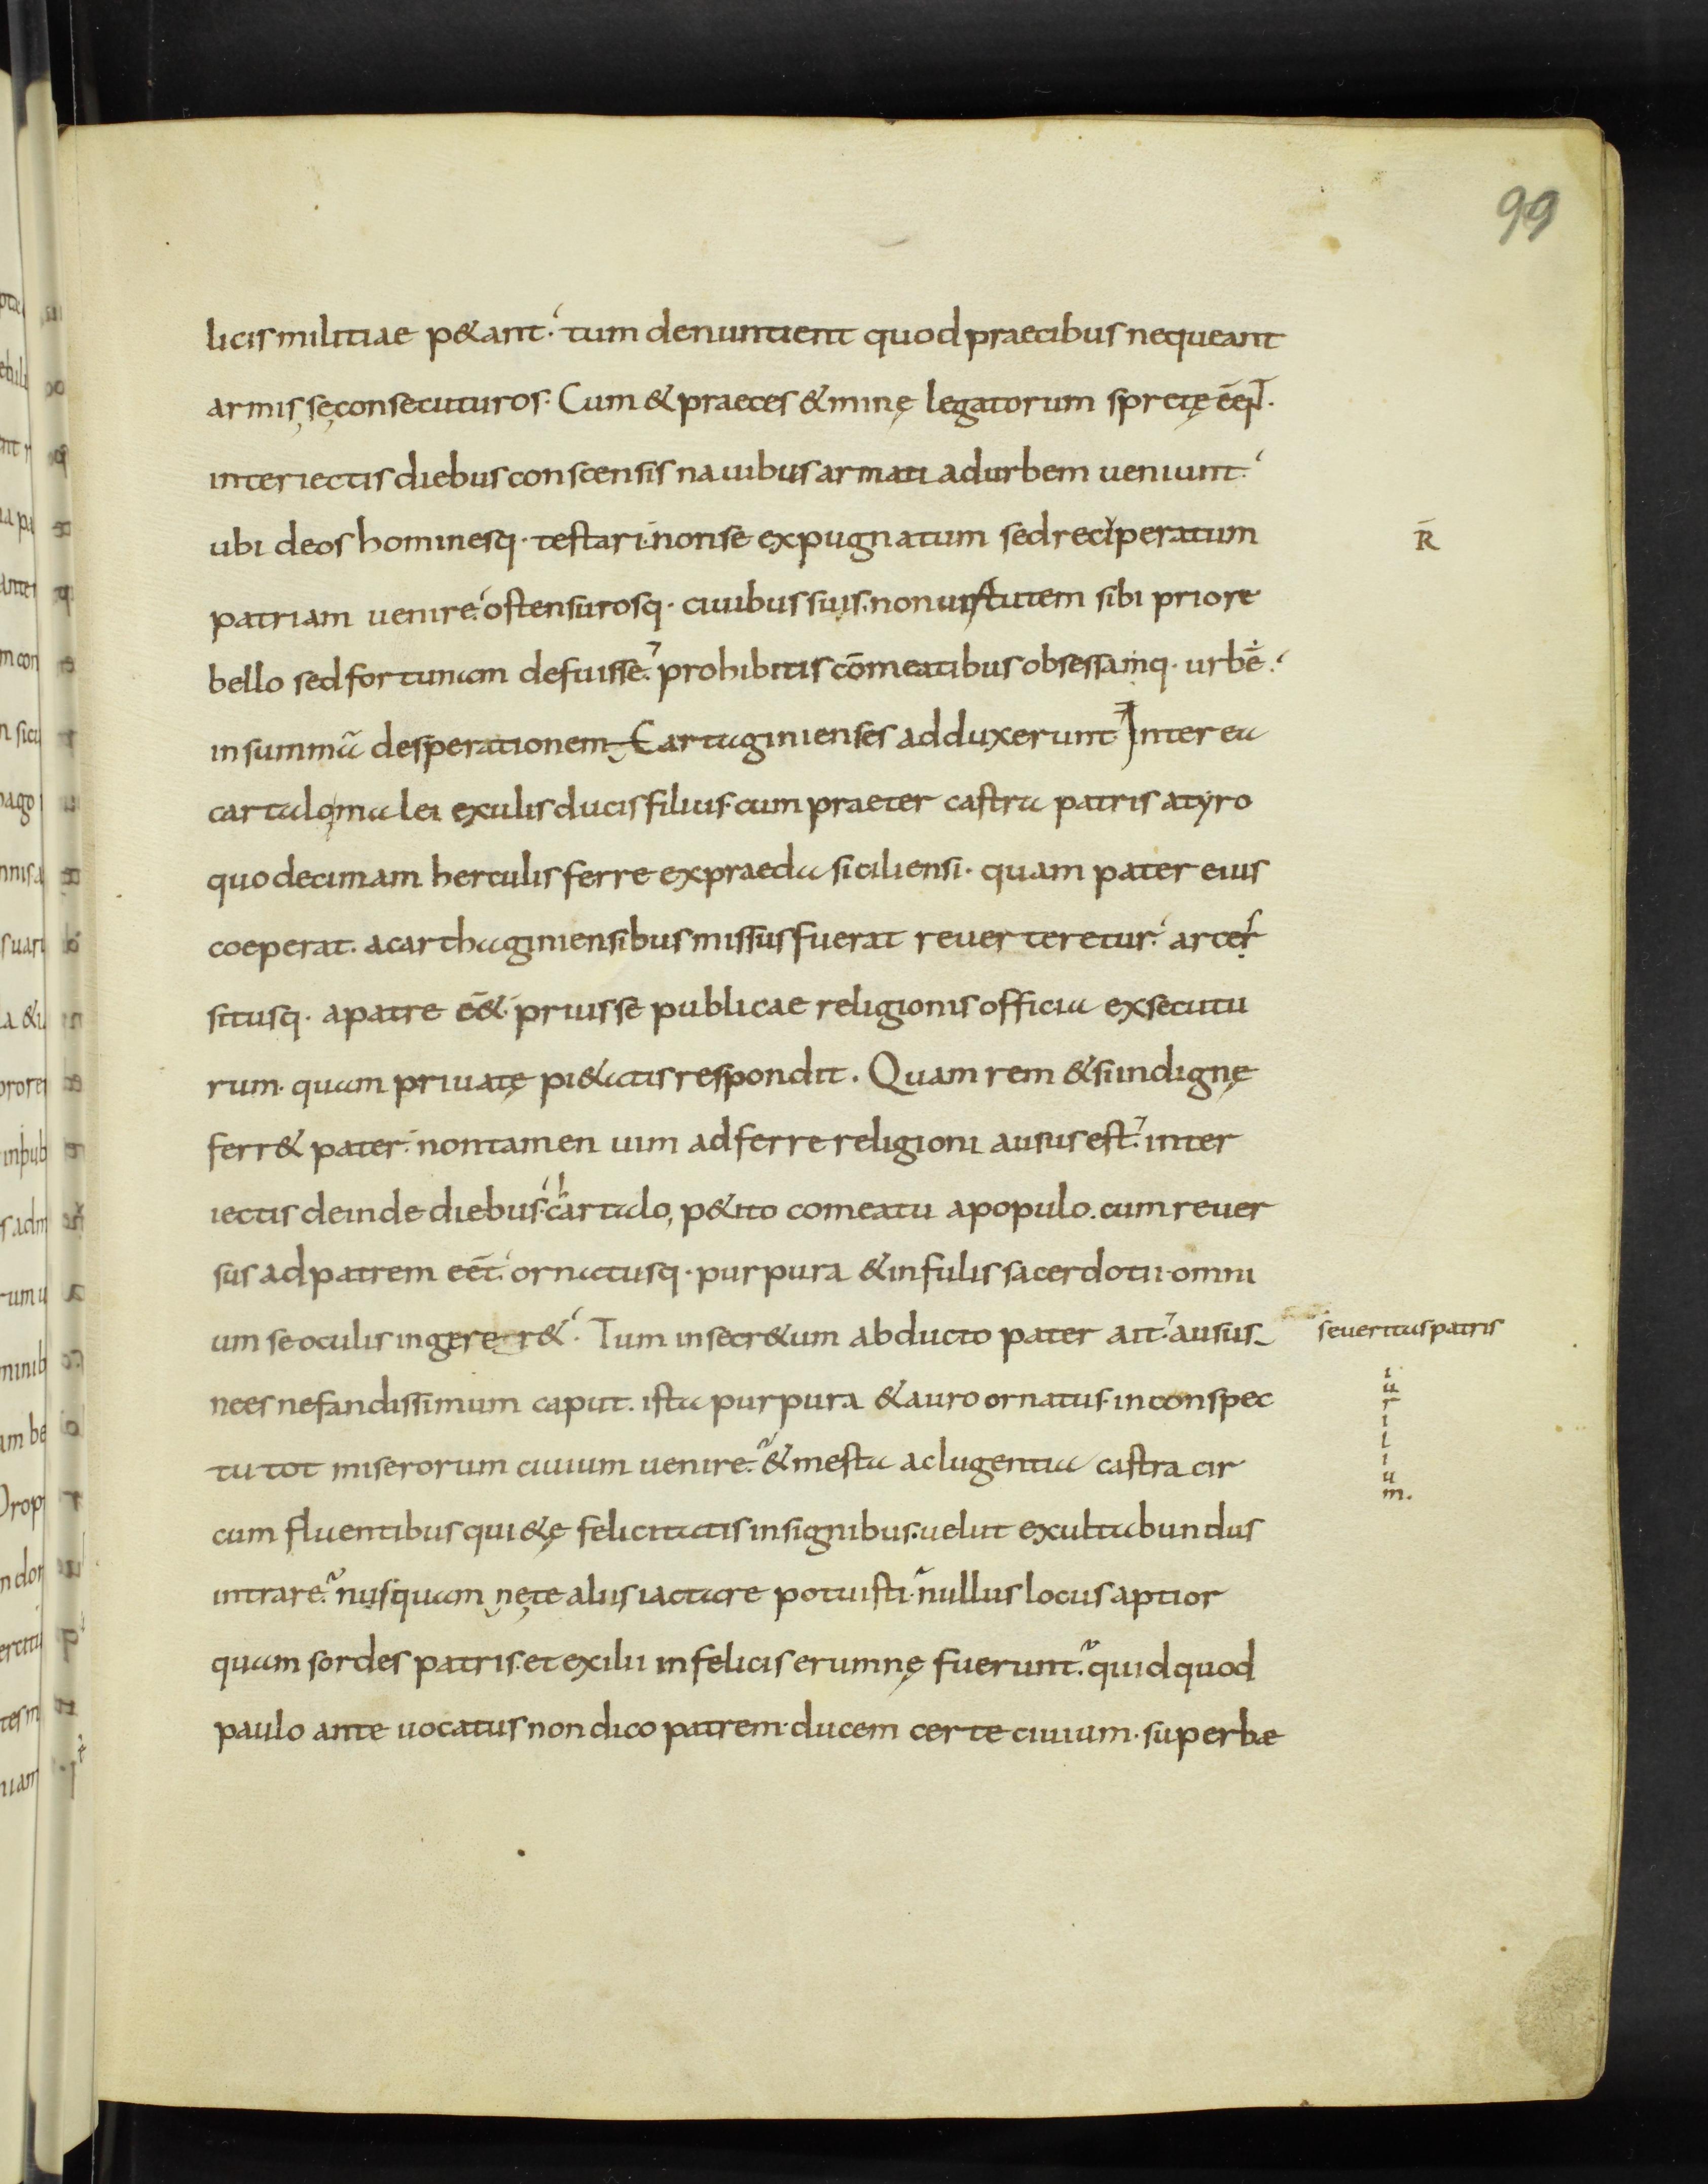 99
licis militiae p&ant. tum denuntient quod praecibus nequeant
armis, se consecuturos. Cum & praeces & minę legatorum spretę ēēq̄.
interiectis diebus conscensis nauibus armati ad urbem ueniunt.
ubi deos hominesq. testari. non se expugnatum sed reciperatum
R̄
patriam uenire. ostensurosq. ciuibus suis. non uirtutem sibi priore
bello sed fortunam defuisse. prohibitis cōmeatibus obsessamq. urbē.
in summā desperationem Cartaginienses adduxerunt Interea
cartalo, malei exulis ducis filius. cum praeter castra patris atyro
quo decimam herculis ferre ex praeda siciliensi. quam pater eius
coeperat. acarthaginiensibus missus fuerat reuerteretur. arces
situsq. apatre ē& prius se publicae religionis officia exsecutu
rum. quam priuatę pi&atis respondit. Quam rem & si indignę
ferr& pater. non tamen uim adferre religioni ausus est. inter
iectis deinde diebus. cartalo, p&ito comeatu apopulo. cum reuer
sus ad patrem eēt. ornatusq. purpura & infulis sacerdotii. omni
um se oculis ingerer&. Tum in secr&um abducto pater ait. ausus
seueritus patris
nees nefandissimum caput. ista purpura & auro ornatus. in conspec
i
u
r
i
l
i
u
m.
tu tot miserorum ciuium uenire. & mesta ac lugentia castra cir
cum fluentibus qui&ę felicitatis insignibus. uelut exultabundus
intrare. nusquam nete aliis iactare potuisti. nullus locus aptior
quam sordes patris. et exilii infelicis erumnę fuerunt. quid quod
paulo ante uocatus non dico patrem. ducem certe ciuium. superbæ